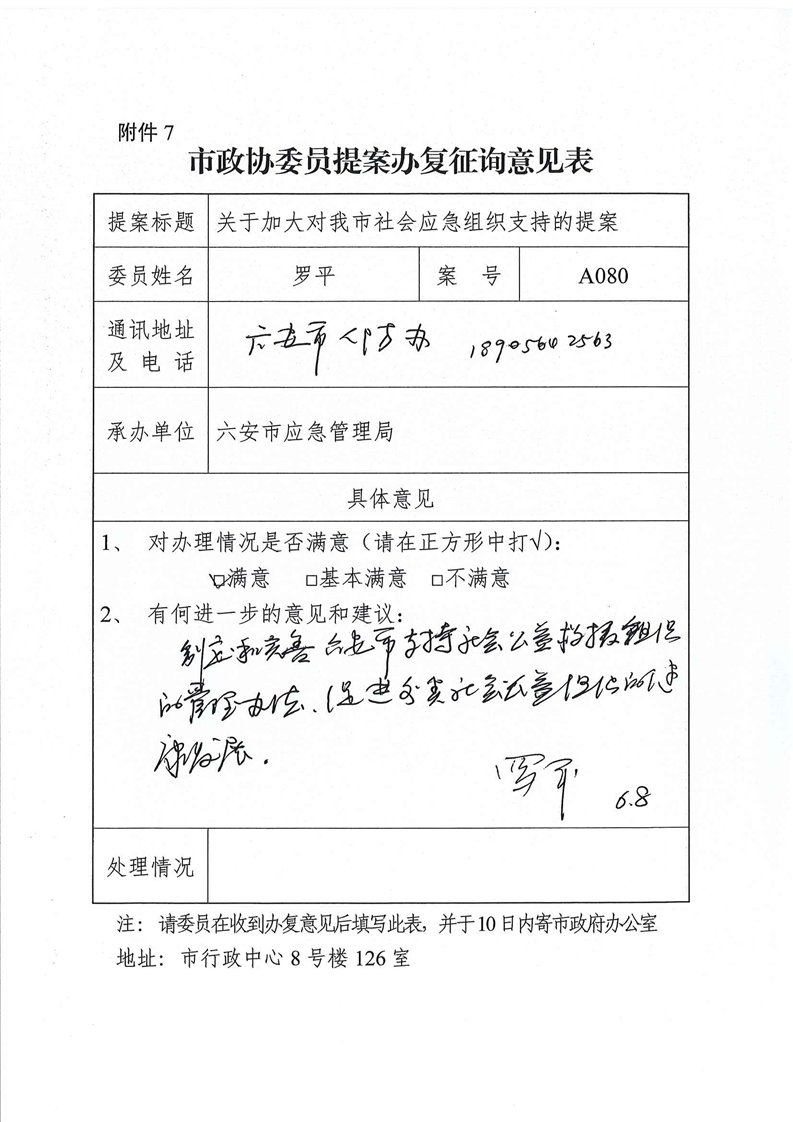 附件 7
市政协委员提案办复征询意见表
提案标题 关于加大对我市社会应急组织支持的提案
委员姓名 罗平 案 号 A080
通讯地址
及 电 话 六安市人防办 18905642563
承办单位 六安市应急管理局
具体意见
1、 对办理情况是否满意（请在正方形中打√）：
☑满意 □基本满意 □不满意
2、 有何进一步的意见和建议：
制定和完善六安市支持社会公益救援组织
的管理办法、促进各类社会公益组织的健
康发展.
罗平 6.8
处理情况
注： 请委员在收到办复意见后填写此表，并于 10 日内寄市政府办公室
地址： 市行政中心 8 号楼 126 室